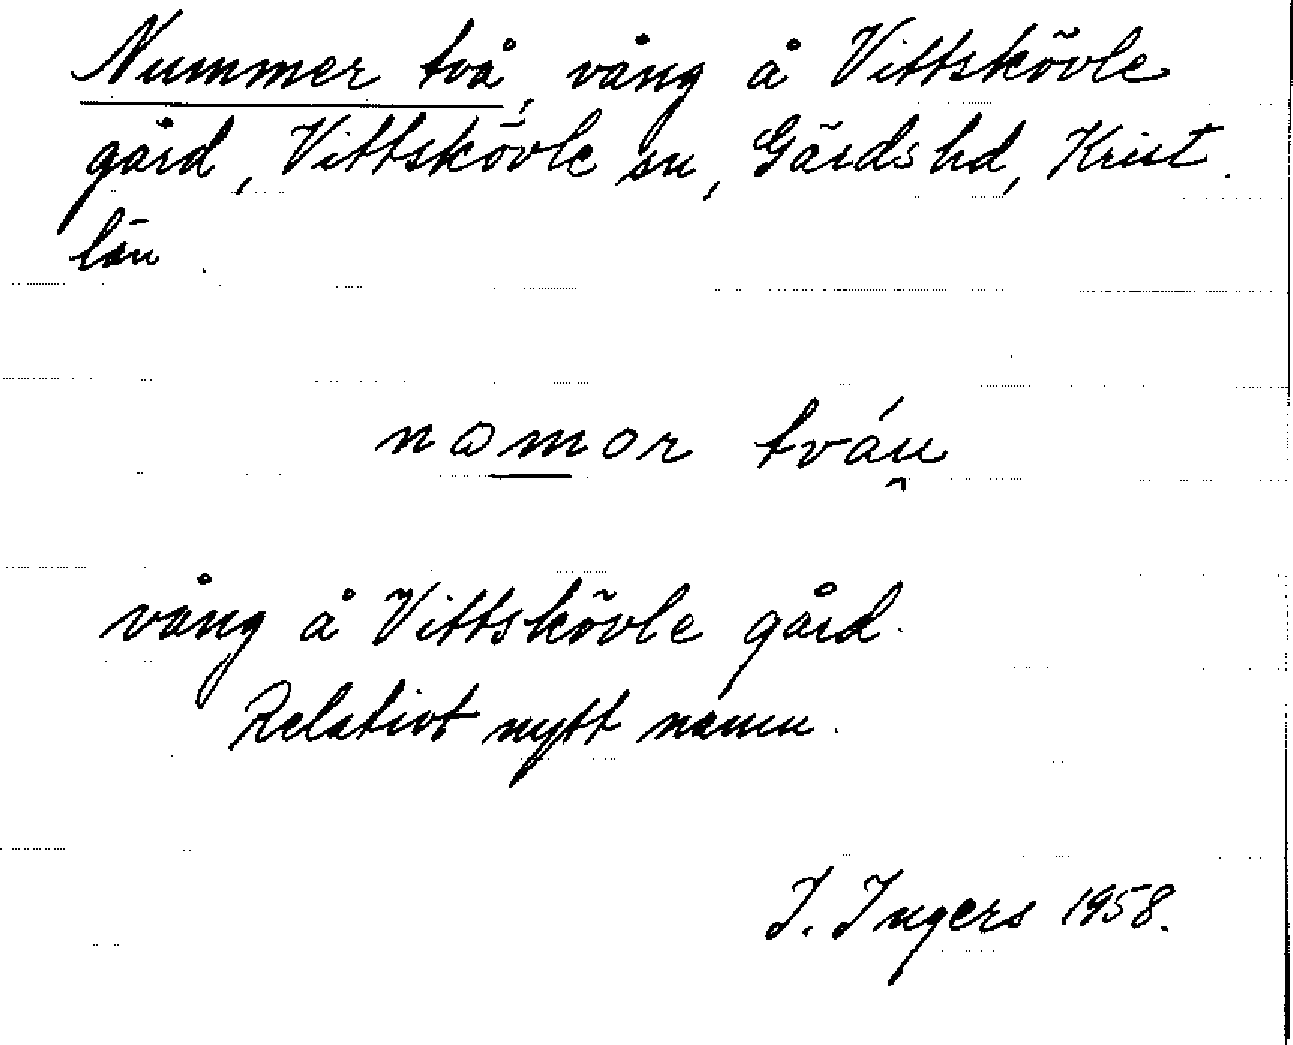 Nummer två, vång å Vittskövle
gård, Vittskövle sn, Gärds hd, Krist.
län.
namor tváu̯
vång å Vittskövle gård.
Relativt nytt namn.
I. Ingers 1958.